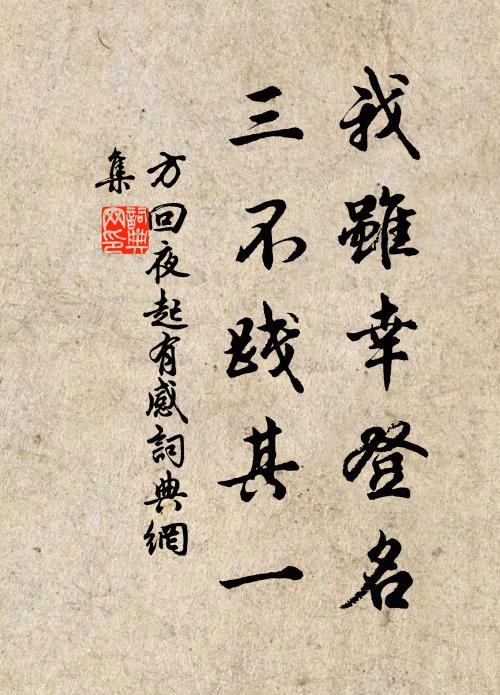 我雖幸登名
三不踐其一
方回夜起有感詞典網
集
詞典
网印